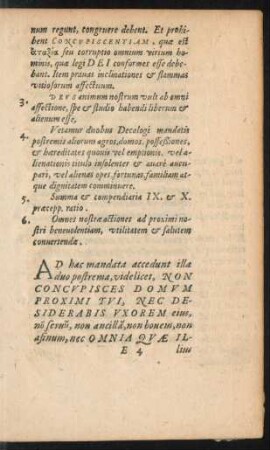 num regunt, congruere debent. Et prohi
bent CONCVPISCENTIAM, quæ est
ἀταξία seu corruptio omnium virium homi
minis, quæ legi DEI conformes esse debe-
bant. Item prauas inclinationes & flammas
vitiosorum affectuum.
3. DEVS animum nostrum vult ab omni
affectione, spe & studio habendi liberum &
alienum esse.
4. Vetamur duobus Decalogi mandatis
postremis aliorum agros, domos, possessiones,
& hæreditates quouis vel emptionis, vel a-
lienationis titulo insolenter & auarè aucu-
pari, vel alienas opes, fortunas, familiam at-
que dignitatem comminuere.
5. Summa & compendiaria IX. & X.
præcepp. ratio.
6. Omnes nostræ actiones ad proximi no-
stri beneuolentiam, vtilitatem & salutem
conuertendæ.
AD hac mandata accedunt illa
duo postrema, videlicet, NON
CONCVPISCES DOMVM
PROXIMI TVI, NEC DE-
SIDERABIS VXOREM eius,
nō seruū, non ancillā, non bouem, non
asinum, nec OMNIA QVÆ IL-
E 4 lius